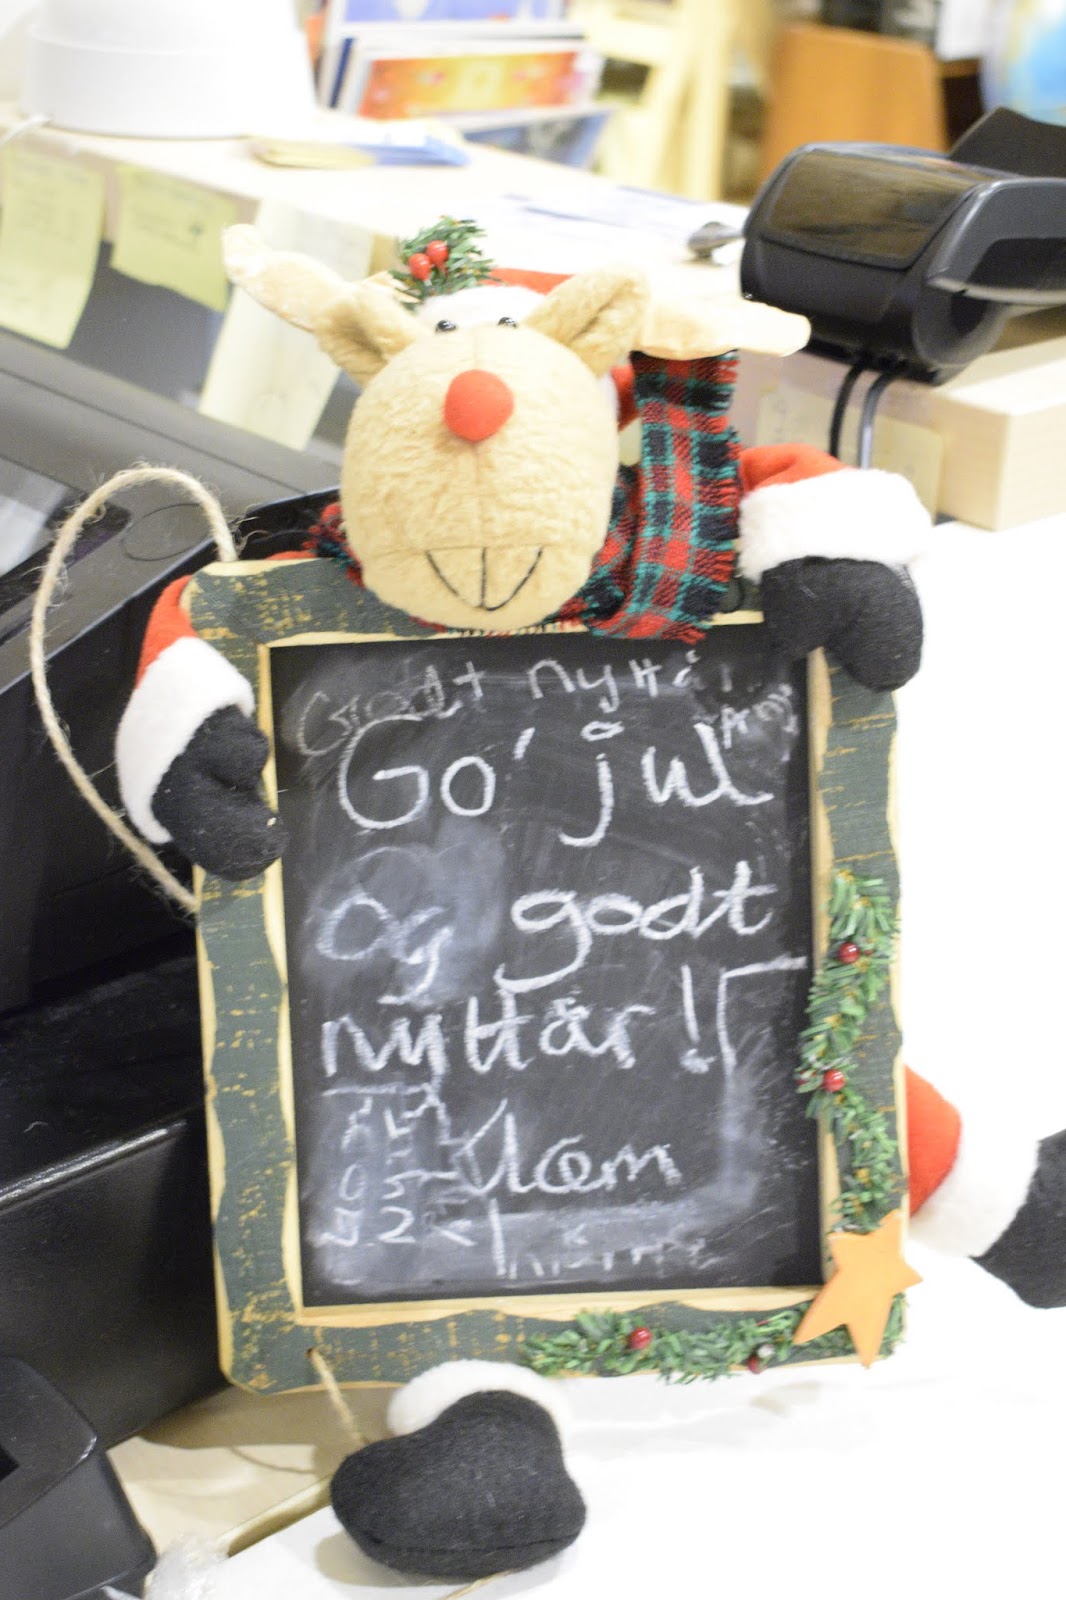 Godt nyttår
Go' jul
Og godt
nyttår!
Klem